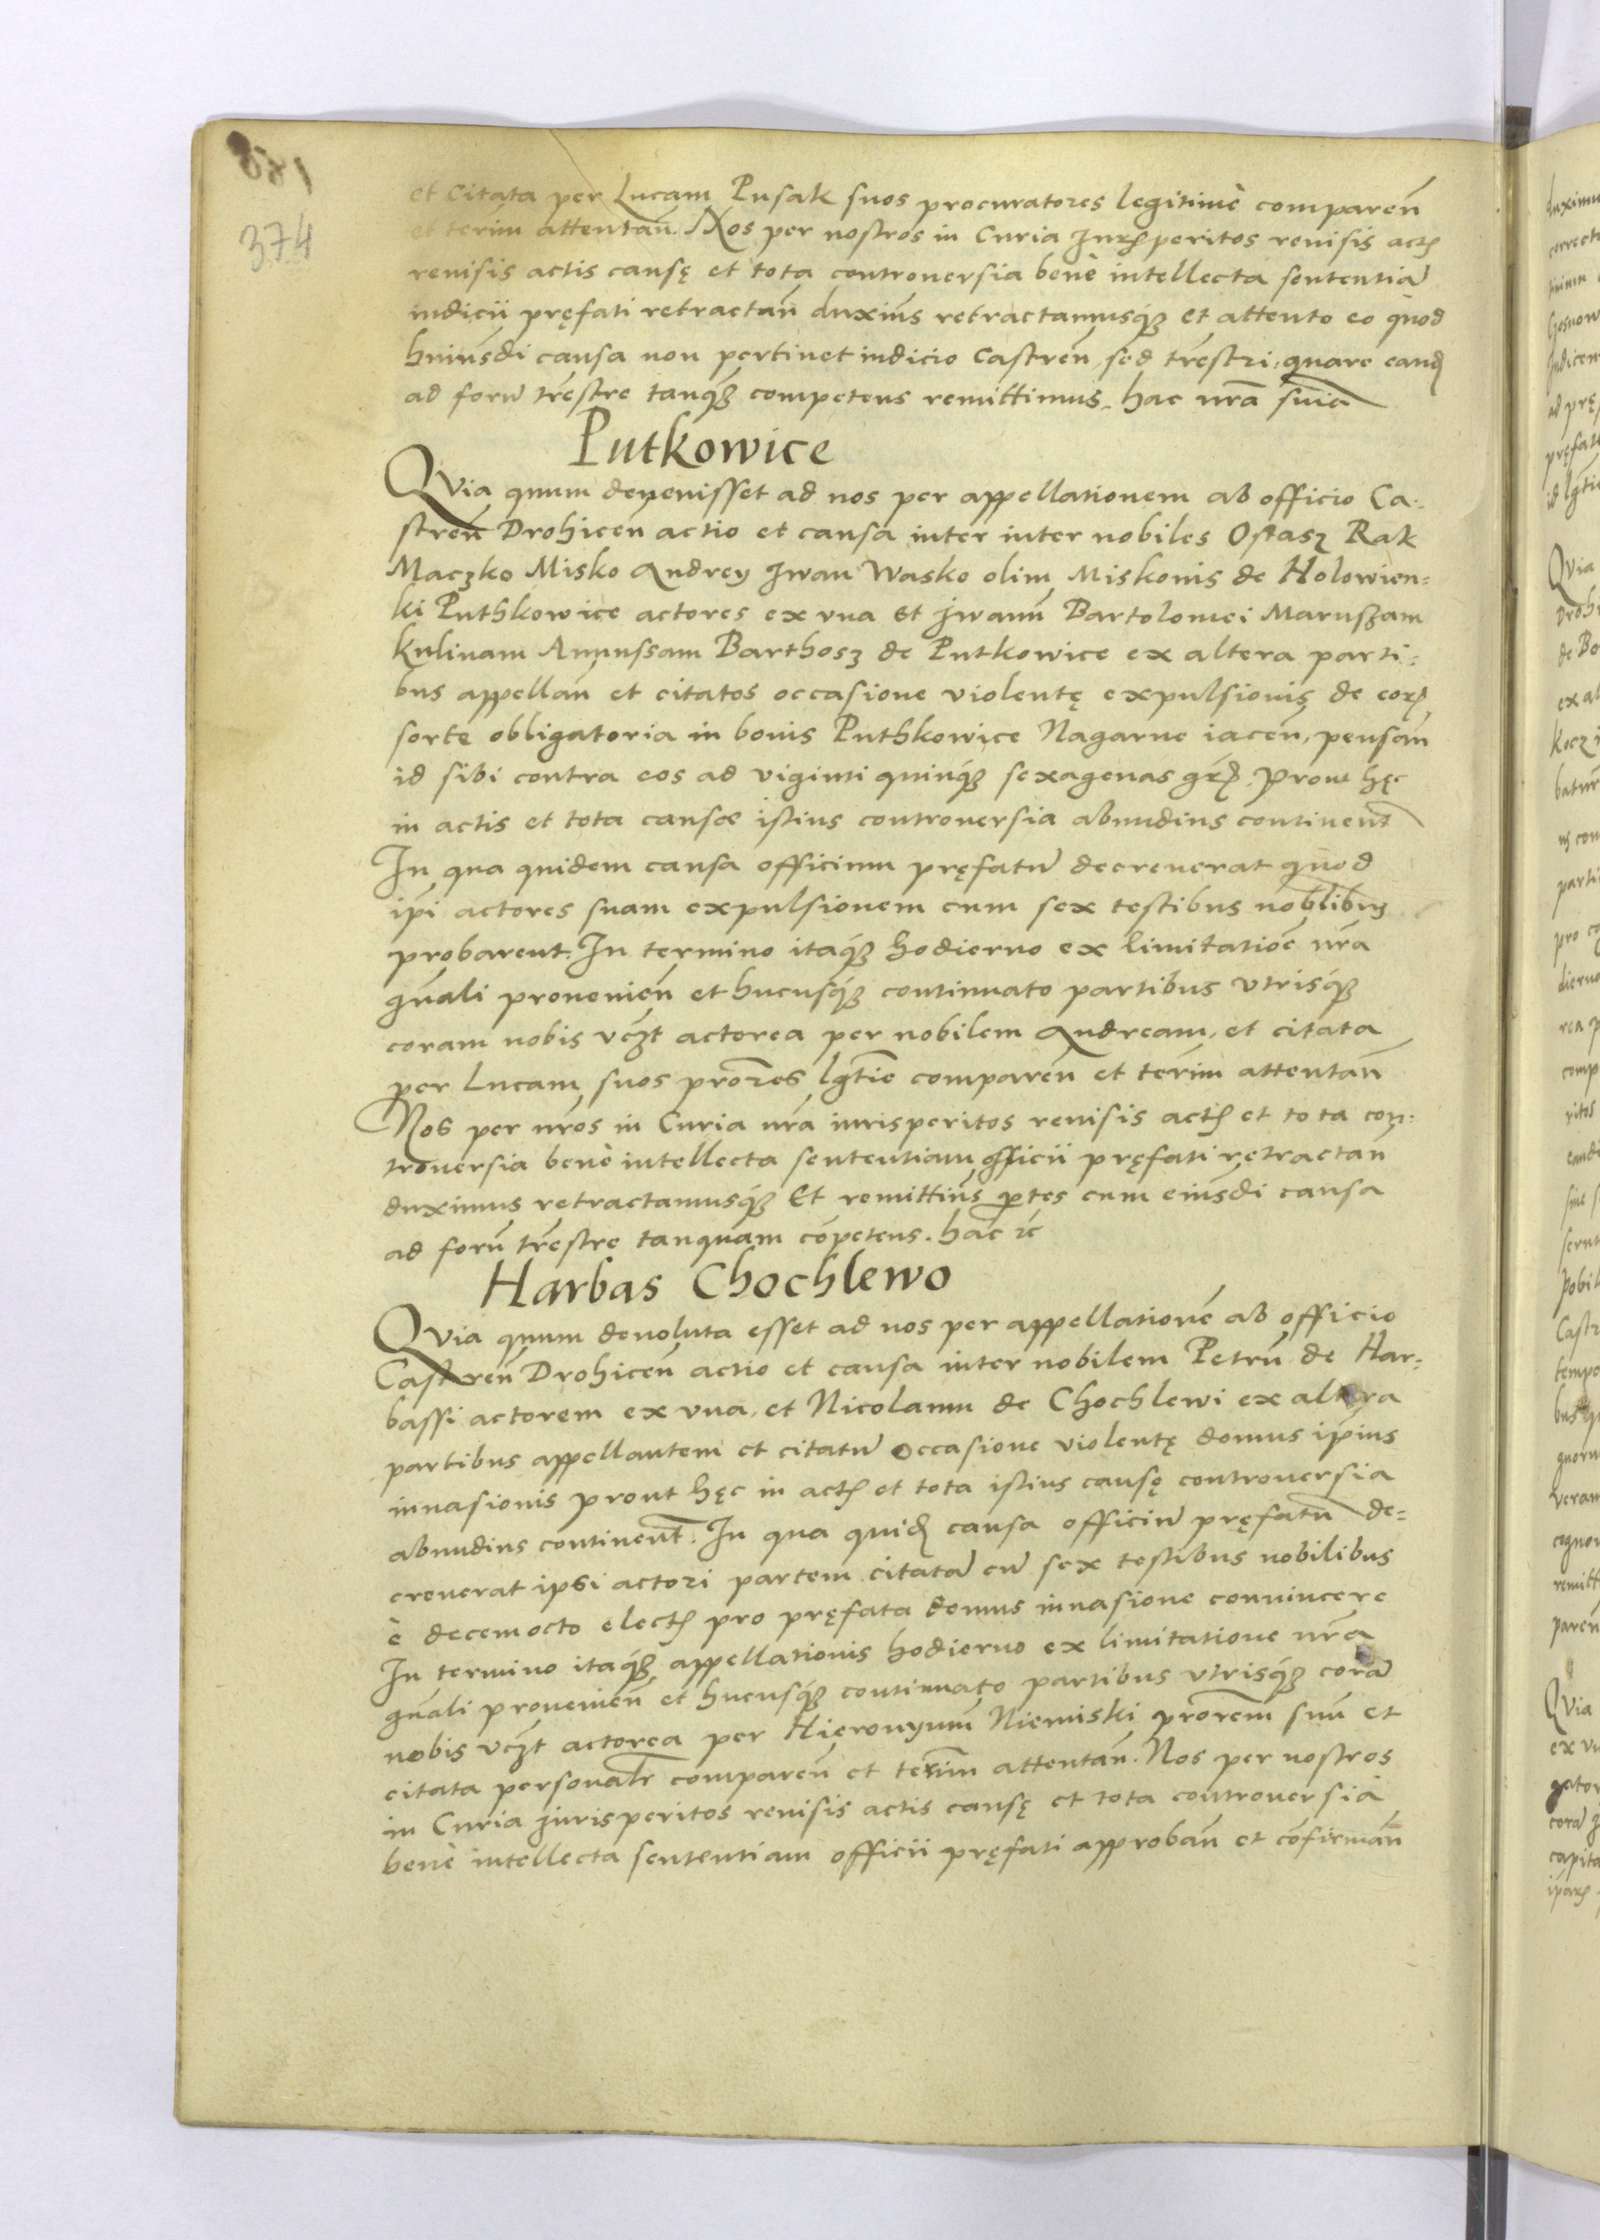 374
et Citata per Lucam Pusak suos procuratores legitimè compareñ
et terim attentañ. Nos per nostros in Curia Jurꝭperitos reuisis actꝭ
reuisis actis causę et tota controuersia benè intellecta sententiã
iudicii pręfati retractañ duxim̃s retractamusqꝫ et attento eo quod
huiusdi causa non pertinet iudicio Castreñ, sed tr̃estri, quare eand
ad forũ tr̃estre tanqꝫ competens remittimus, hac nr̃a sñia
Putkowice
Quia quum deuenisset ad nos per appellationem ab officio Ca-
streñ Drohiceñ actio et causa inter inter nobiles Ostasz Rak
Maczko Misko Andrey Jwan Wasko olim Miskonis de Holowien=
ki Puthkowice actores ex vna Et Jwanũ Bartolomei Maruszam
Kulinam Anussam Barthosz de Putkowice ex altera parti=
bus appellañ et citatos occasione violentę expulsionis de eorꝫ
sorte obligatoria in bonis Puthkowice Nagarne iaceñ, pensañ
id sibi contra eos ad viginti quinqꝫ sexagenas gr̃ꝭ. Prout hęc
in actis et tota causæ istius controuersia abundius continent̃
In qua quidem causa officium pręfatũ decreuerat quod
ip̃i actores suam expulsionem cum sex testibus nobilibus
probarent. In termino itaqꝫ hodierno ex limitatioẽ nr̃a
gñali prouenieñ et hucusqꝫ continuato partibus vtrisqꝫ
coram nobis vcꝫt actorea per nobilem Andream, et citata
per Lucam, suos pror̃es lgt̃ie compareñ et terim attentañ
Nos per nr̃os in Curia nr̃a iurisperitos reuisis actꝭ et tota con-
trouersia benè intellecta sententiam officii pręfati retractañ
duximus retractamusqꝫ Et remittim̃s ptes cum eiusdi causa
ad forũ tr̃estre tanquam cõpetens. hac ꝛc
Harbas Chochlewo
Quia quum deuoluta esset ad nos per appellationẽ ab officio
Castreñ Drohiceñ actio et causa inter nobilem Petrũ de Har=
bassi actorem ex vna, et Nicolaum de Chochlewi ex altera
partibus appellantem et citatũ occasione violentę domus ip̃ius
inuasionis prout hęc in actꝭ et tota istius causę controuersia
abundius continent̃. In qua quidꝫ causa officiũ pręfatũ de=
creuerat ipsi actori partem citatã cũ sex testibus nobilibus
è decemocto electꝭ pro pręfata domus inuasione conuincere
In termino itaqꝫ appellationis hodierno ex limitatione nr̃a
gñali prouenieñ et hucusqꝫ continuato partibus vtrisqꝫ corã
nobis vcꝫt actorea per Hieronymũ Niemiski prorem̃ suũ et
citata personalr̃ compareñ et terim̃ attentañ. Nos per nostros
in Curia jurisperitos reuisis actis causę et tota controuersia
benè intellecta sententiam officii pręfati approbañ et cõfirmañ